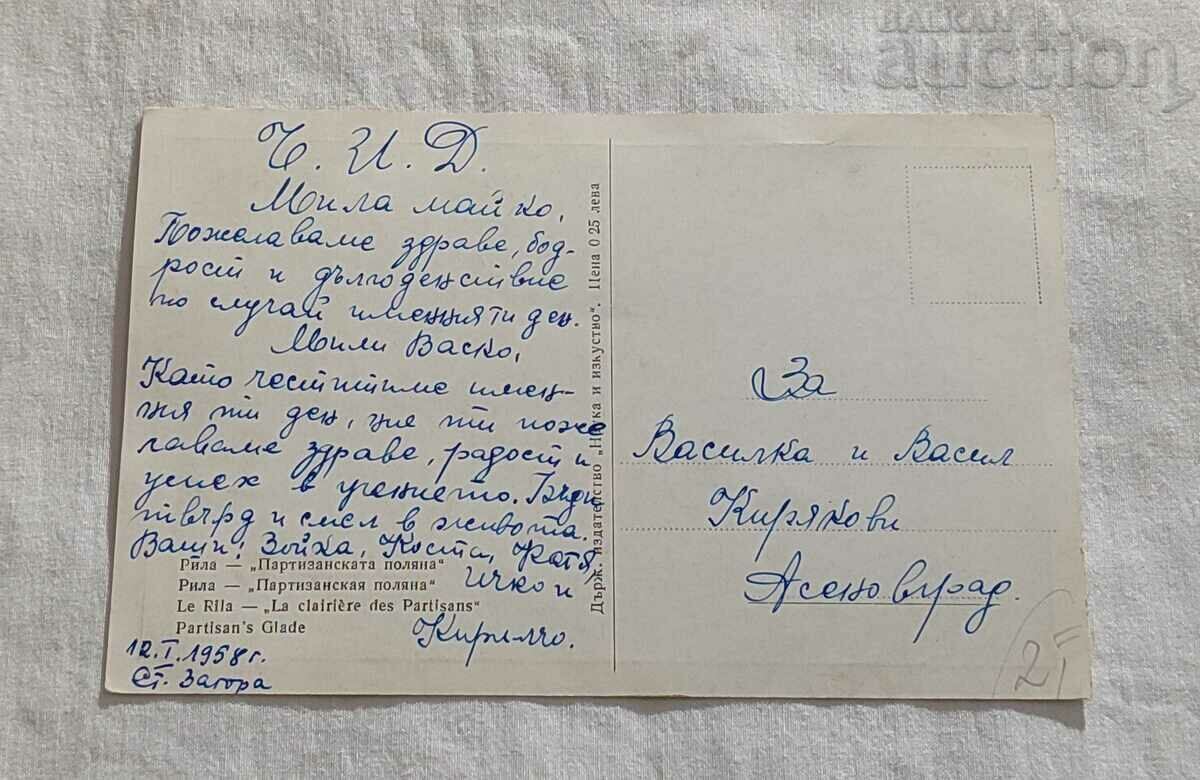 Ч. И. Д.
Мила майко,
Пожелаваме здраве, бод-
рост и дългоденствие
по случай имения ти ден.
Мили Васко,
Като честитиме имен-
ния ти ден, ние ти поже
лаваме здраве, радост и
успех в учението. Бъди
твърд и смел в живота.
Ваши: Зойка, Коста, Катя,
Ичко и
Кирилчо.
Рила — „Партизанската поляна"
Рила — „Партизанская поляна"
Le Rila — „La clairière des Partisans"
Partisan's Glade
12.I.1958 г.
Ст. Загора
Държ. издателство „Наука и изкуство". Цена 0 25 лева
За
Василка и Васил
Кирякови
Асеновград.
2
BALKAN
auction